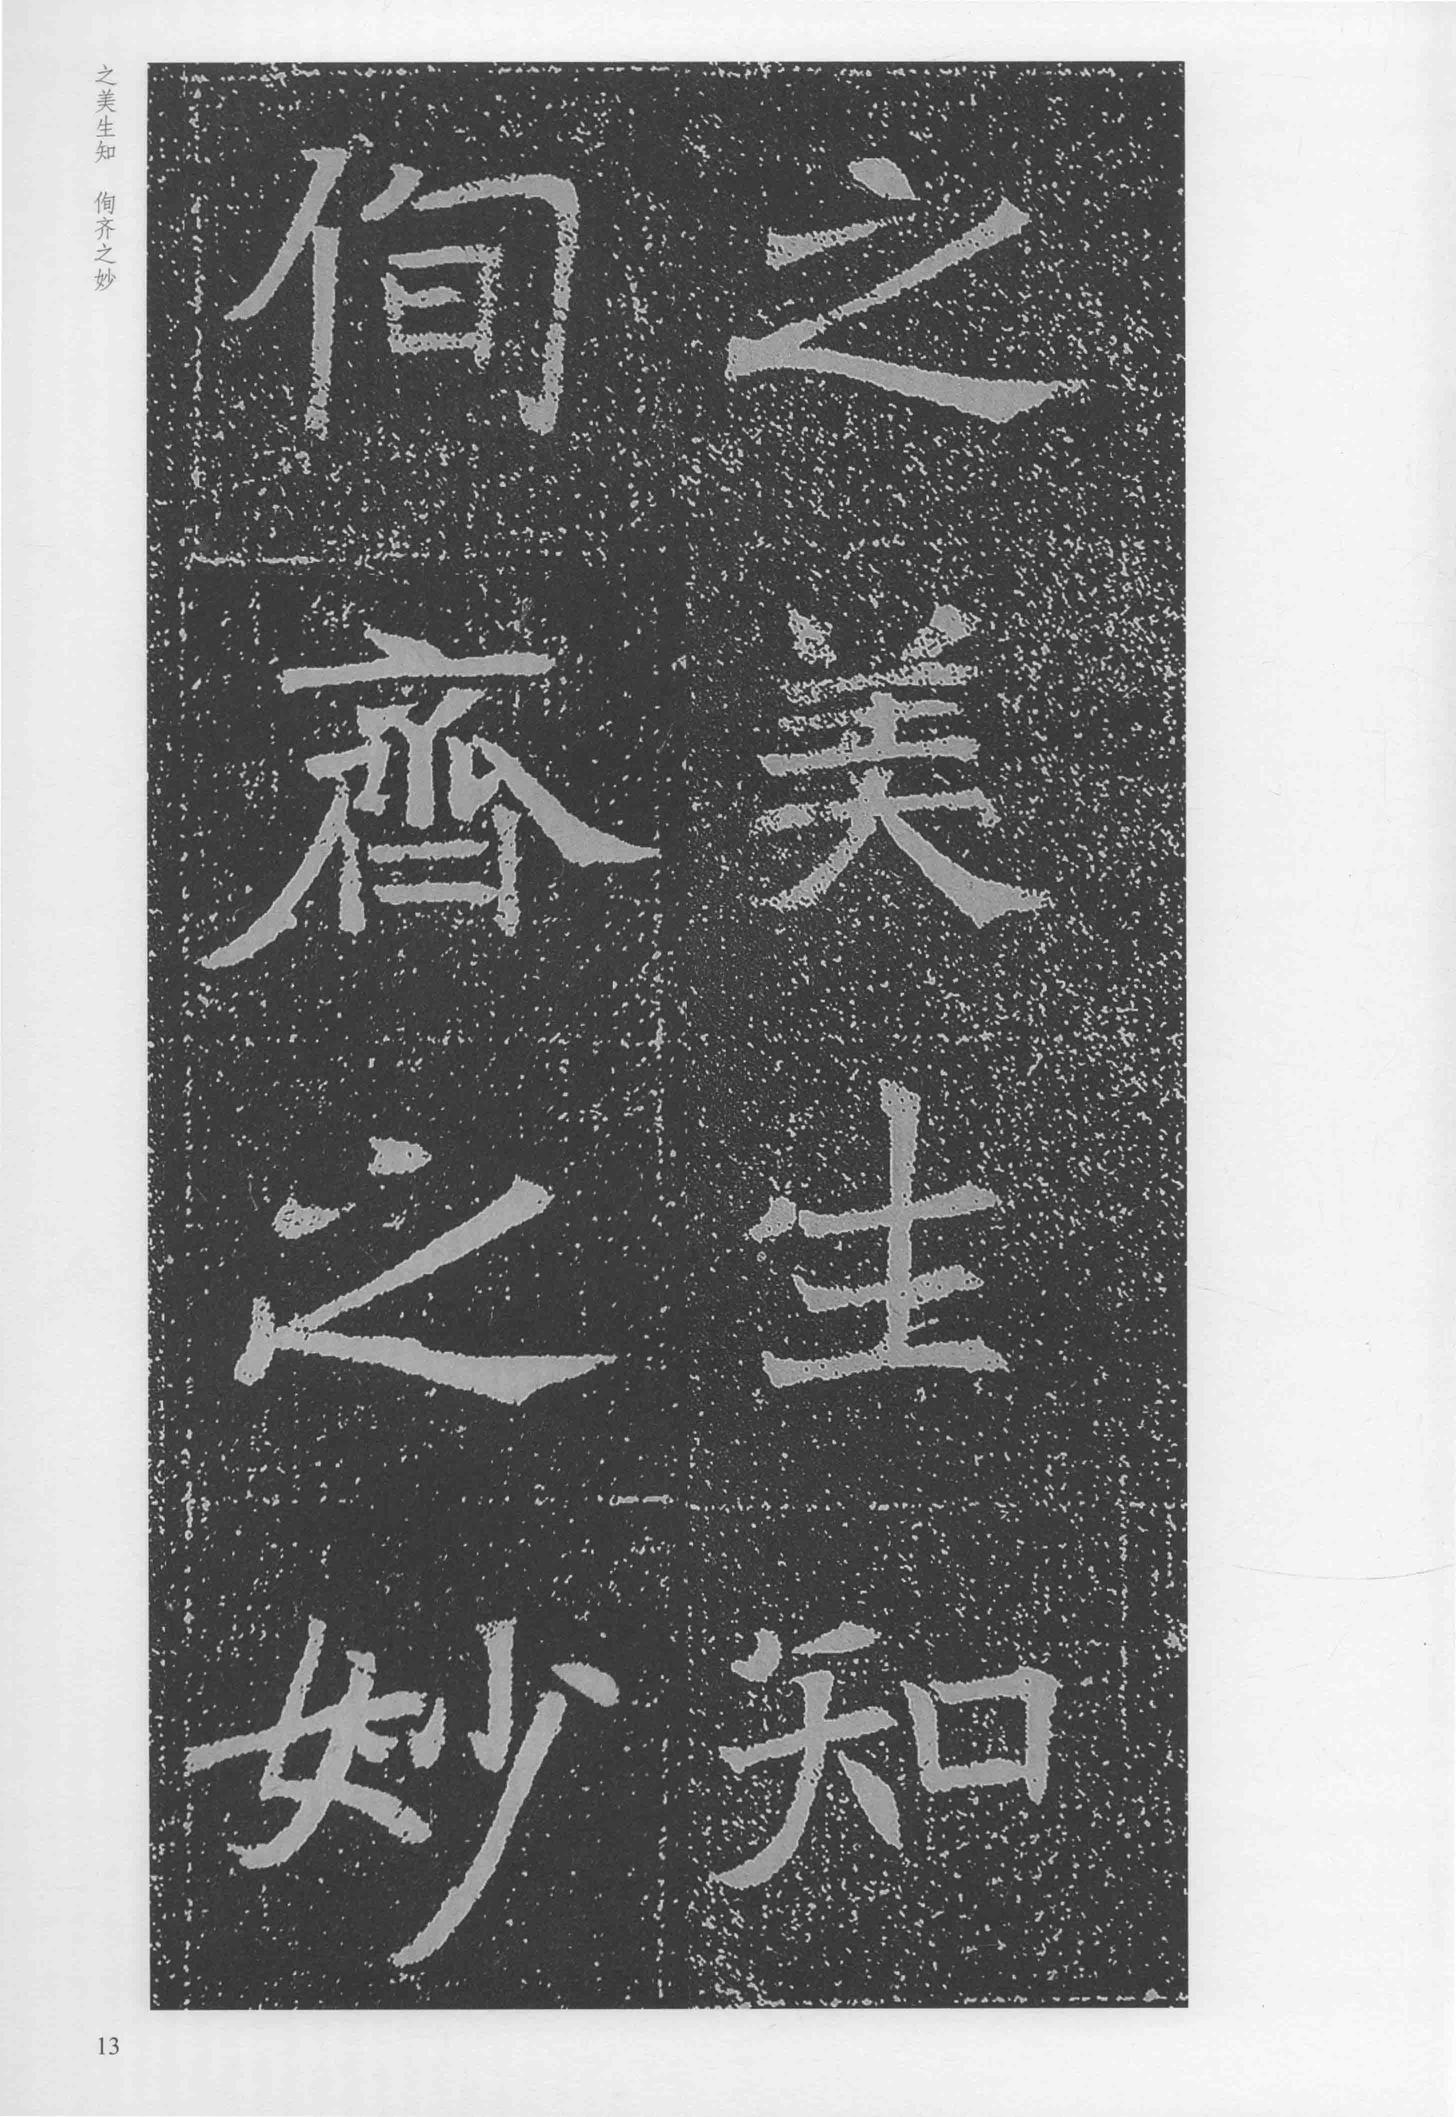 之美生知
侚齊之妙
之美生知 侚齐之妙
13